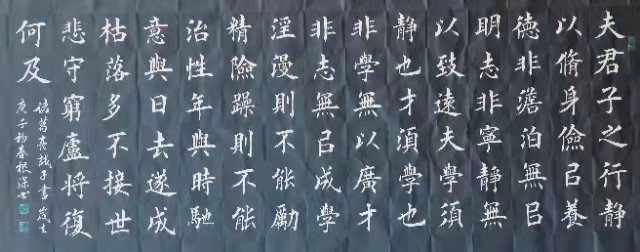 夫君子之行静
以脩身儉㠯養
德非澹泊無㠯
明志非寧静無
以致遠夫學須
静也才須學也
非學無以廣才
非志無㠯成學
淫漫則不能勵
精險躁則不能
治性年與時馳
意與日去遂成
枯落多不接世
悲守窮廬將復
何及
諸葛亮誡子書
庚子初春根深書